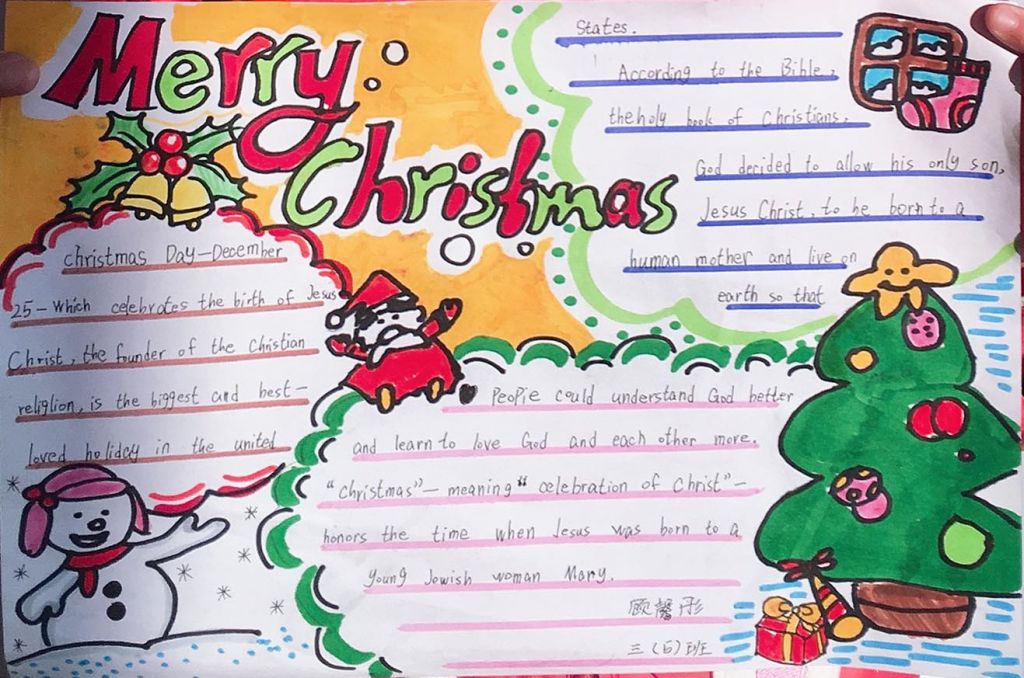 Merry
Christmas
christmas Day—December
25—which celebrates the birth of Jesus
Christ, the founder of the Christian
religlion, is the biggest and best—
loved holiday in the united
States.
According to the Bible,
the holy book of Christians,
God decided to allow his only son,
Jesus Christ, to be born to a
human mother and live on
earth so that
PeoPie could understand God better
and learn to love God and each other more.
"christmas"—meaning "celebration of Christ"—
honors the time when Jesus was born to a
young Jewish woman Mary.
顾馨彤
三(6)班